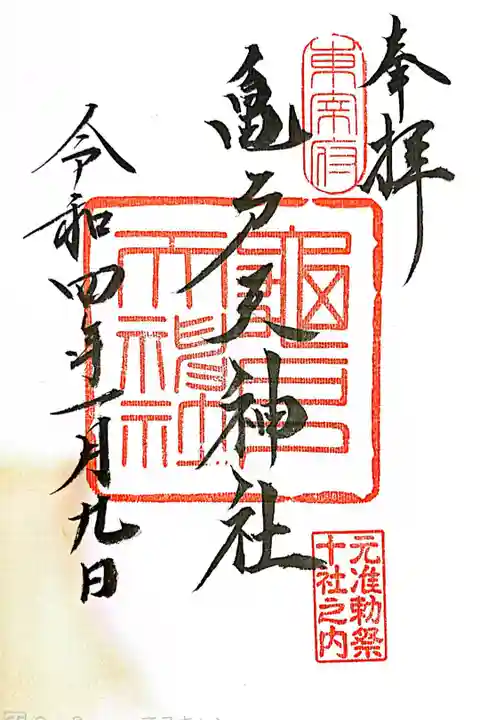 奉拝
東宰府
亀戸天神社
亀戸天神社
元准勅祭
十社之内
令和四年一月九日